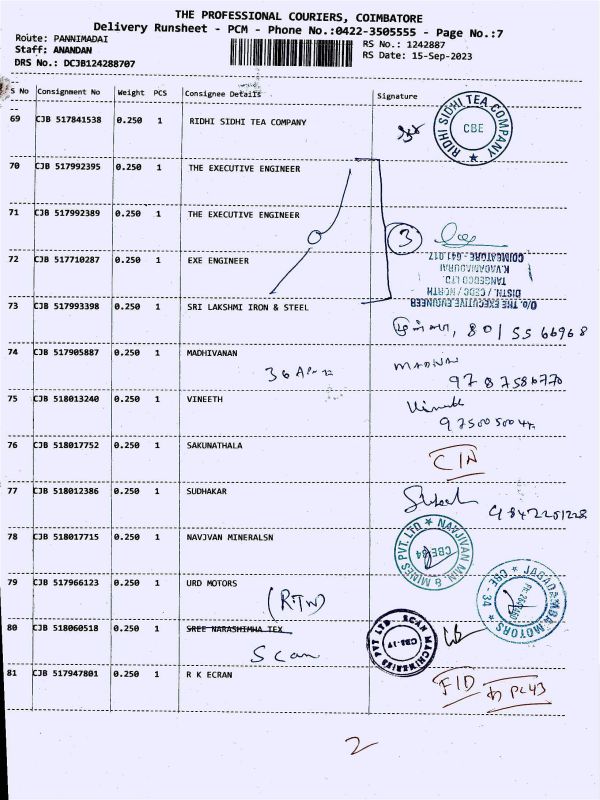 THE PROFESSIONAL COURIERS, COIMBATORE
Delivery Runsheet - PCM - Phone No.:0422-3505555 - Page No.:7
Route: PANNIMADAI
RS No.: 1242887
Staff: ANANDAN
RS Date: 15-Sep-2023
DRS No.: DCJB124288707
S No Consignment No Weight PCS Consignee Details Signature
69 CJB 517841538 0.250 1 RIDHI SIDHI TEA COMPANY
RIDHI SIDHI TEA COMPANY
CBE
70 CJB 517992395 0.250 1 THE EXECUTIVE ENGINEER
71 CJB 517992389 0.250 1 THE EXECUTIVE ENGINEER
3
72 CJB 517710287 0.250 1 EXE ENGINEER
O/o. THE EXECUTIVE ENGINEER
DISTN. / CEDC / NORTH
TANGEDCO LTD.
K.VADAMADURAI
COIMBATORE - 641 017
73 CJB 517993398 0.250 1 SRI LAKSHMI IRON & STEEL
74 CJB 517905887 0.250 1 MADHIVANAN
9787586770
75 CJB 518013240 0.250 1 VINEETH
76 CJB 518017752 0.250 1 SAKUNATHALA
77 CJB 518012386 0.250 1 SUDHAKAR
78 CJB 518017715 0.250 1 NAVJVAN MINERALSN
NAVJIVAN MIN. & MINES PVT. LTD
CBE-34
79 CJB 517966123 0.250 1 URD MOTORS
JAGADAMBA MOTORS
CBE - 34
80 CJB 518060518 0.250 1 SREE NARASHIMHA TEX
Scan
SCAN MACHINERIES PVT LTD
81 CJB 517947801 0.250 1 R K ECRAN
2